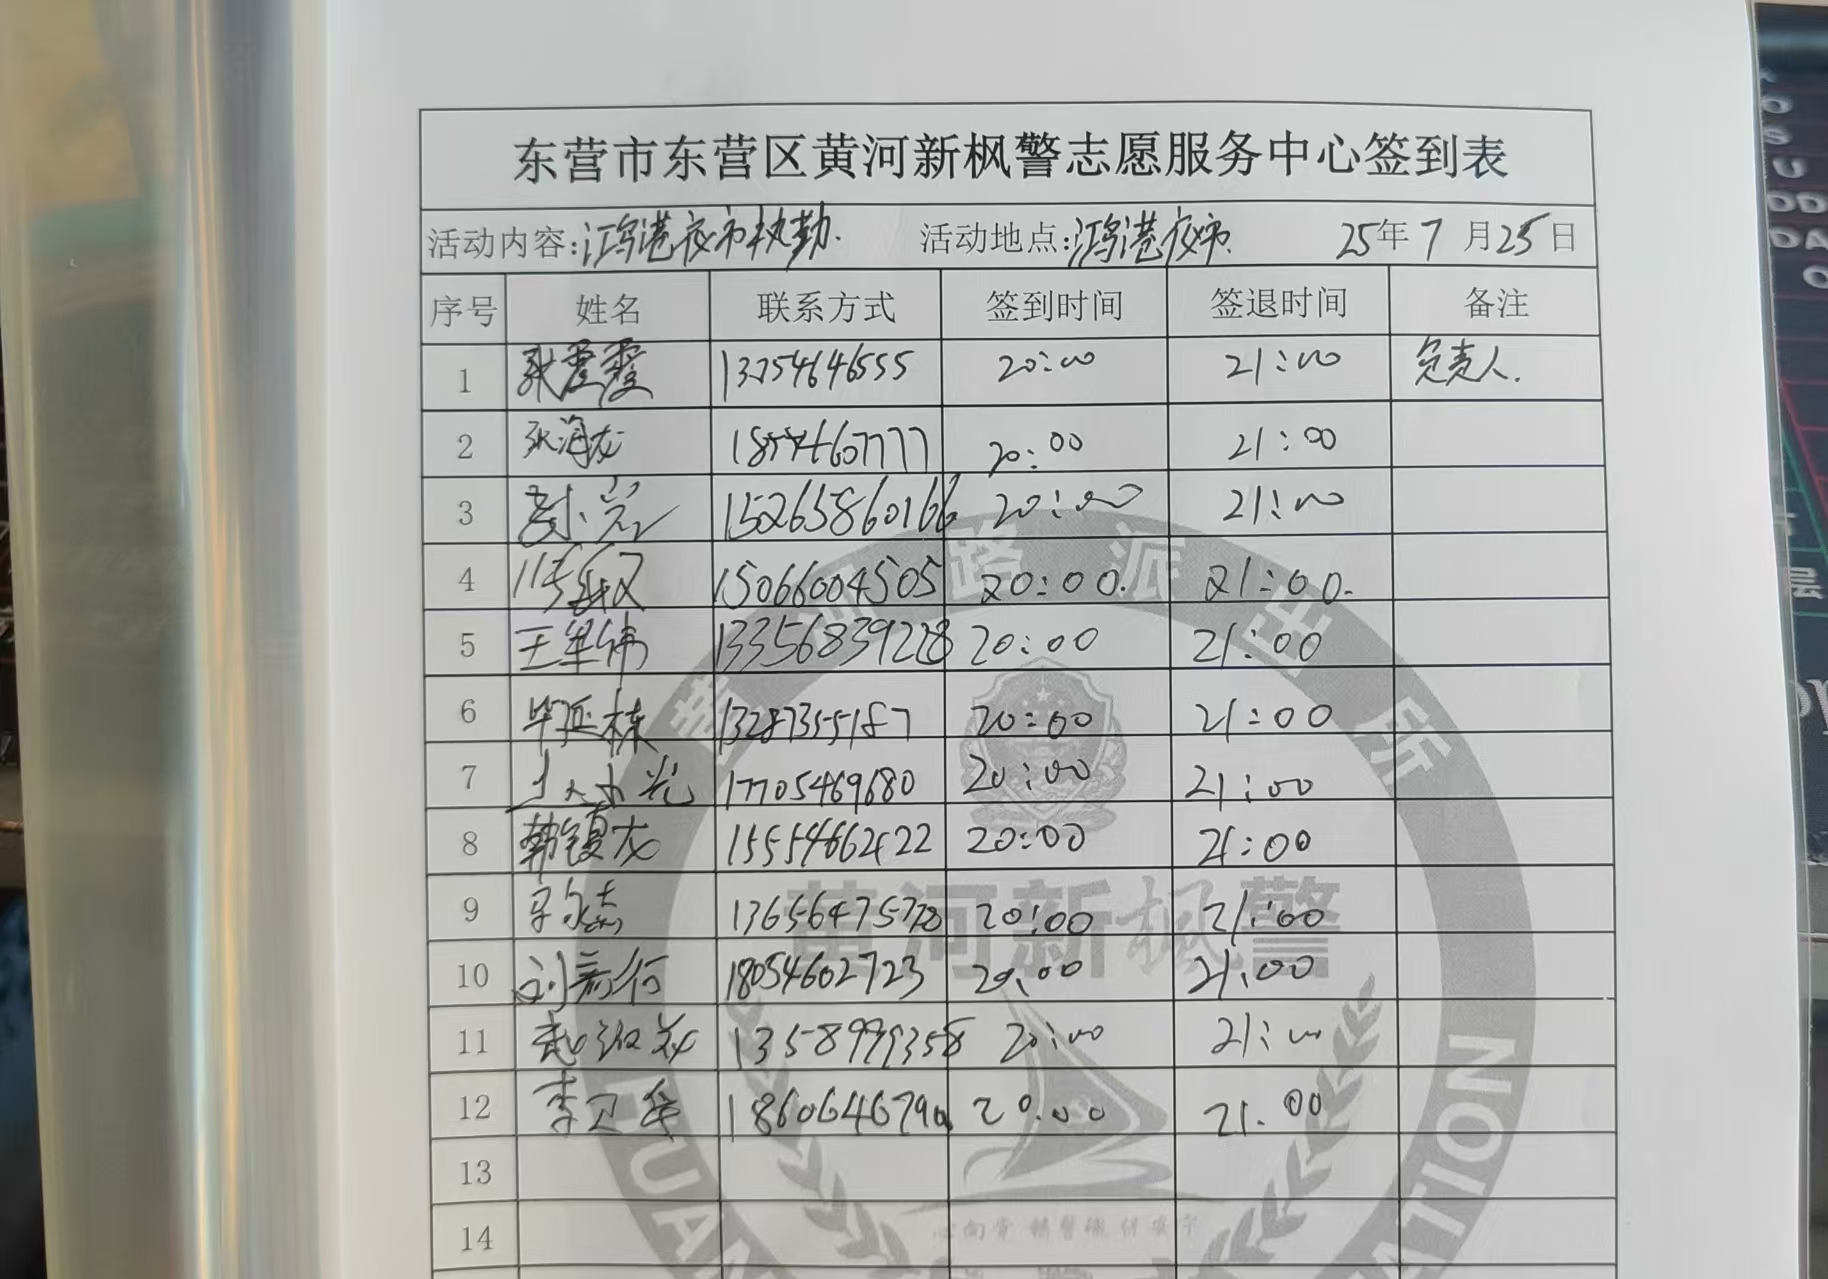 东营市东营区黄河新枫警志愿服务中心签到表
活动内容:鸿港夜市执勤. 活动地点:鸿港夜市. 25年7月25日
序号 姓名 联系方式 签到时间 签退时间 备注
1 张霞霞 13254646555 20:00 21:00 负责人.
2 张海龙 20:00 21:00
3 15265860166 20:00 21:00
4 15066004505 20:00. 21:00.
5 王星伟 13356839228 20:00 21:00
6 毕延栋 13287355187 20:00 21:00
7 17705469680 20:00 21:00
8 韩镘龙 15554662422 20:00 21:00
9 20:00 21:00
10 刘新行 18054602723 20:00 21:00
11 13589993358 20:00 21:00
12 李卫华 20:00 21:00
13
14
黄河路派出所
黄河新枫警